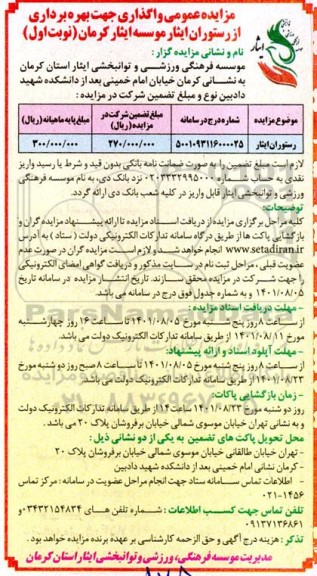 مزایده عمومی واگذاری جهت بهره برداری
از رستوران ایثار موسسه ایثار کرمان (نوبت اول)
نام و نشانی مزایده گزار :
موسسه فرهنگی ورزشی و توانبخشی ایثار استان کرمان
به نشانی کرمان خیابان امام خمینی بعد از دانشکده شهید
دادبین نوع و مبلغ تضمین شرکت در مزایده :
موضوع مزایده شماره درج در سامانه مبلغ تضمین شرکت در مزایده (ریال) مبلغ پایه ماهیانه (ریال)
رستوران ایثار ۵۰۰۱۰۹۳۱۱۶۰۰۰۰۲۵ ۲۷۰/۰۰۰/۰۰۰ ۳۰۰/۰۰۰/۰۰۰
لازم است مبلغ تضمین را به صورت ضمانت نامه بانکی بدون قید و شرط یا رسید واریز
نقدی به حساب شماره نزد بانک دی، به نام موسسه فرهنگی
ورزشی و توانبخشی ایثار قابل واریز در کلیه شعب بانک دی ارائه گردد.
توضیحات:
کلیه مراحل برگزاری مزایده از دریافت اسناد مزایده تا ارائه پیشنهاد مزایده گران و
بازگشائی پاکت ها از طریق درگاه سامانه تدارکات الکترونیکی دولت (ستاد) به آدرس
www.setadiran.ir انجام خواهد شد و لازم است مزایده گران در صورت عدم
عضویت قبلی ، مراحل ثبت نام در سایت مذکور و دریافت گواهی امضای الکترونیکی
را جهت شرکت در مزایده محقق سازند. تاریخ انتشار مزایده در سامانه تاریخ
۱۴۰۱/۰۸/۰۵ و به شماره جدول فوق درج در سامانه می باشد.
مهلت دریافت اسناد مزایده :
از ساعت ۸ روز پنج شنبه مورخ ۱۴۰۱/۰۸/۰۵ تا ساعت ۱۶ روز چهارشنبه
مورخ ۱۴۰۱/۰۸/۱۱ از طریق سامانه تدارکات الکترونیک دولت می باشد.
مهلت آپلود اسناد و ارائه پیشنهاد:
از ساعت ۸ روز پنج شنبه مورخ ۱۴۰۱/۰۸/۰۵ تا ساعت ۸ صبح روز دو شنبه مورخ
۱۴۰۱/۰۸/۲۳ از طریق سامانه تدارکات الکترونیک دولت می باشد.
زمان بازگشایی پاکات:
روز دو شنبه مورخ ۱۴۰۱/۰۸/۲۳ ساعت ۱۴ از طریق سامانه تدارکات الکترونیک دولت
و به نشانی تهران خیابان موسوی شمالی خیابان برفروشان پلاک ۲۰ می باشد.
محل تحویل پاکت های تضمین به یکی از دو نشانی ذیل :
- تهران خیابان طالقانی خیابان موسوی شمالی خیابان برفروشان پلاک ۲۰
- کرمان نشانی امام خمینی بعد از دانشکده شهید دادبین
- اطلاعات تماس سامانه ستاد جهت انجام مراحل عضویت در سامانه: مرکز تماس
۰۲۱-۱۴۵۶
تلفن تماس جهت کسب اطلاعات : شماره تلفن های ۰۳۴۳۲۱۵۴۸۳۴ و
۰۹۱۳۷۱۳۶۸۶۱
تذکر : هزینه درج آگهی و حق الزحمه کارشناسی بر عهده برنده مزایده خواهد بود.
مدیریت موسسه فرهنگی، ورزشی و توانبخشی ایثار استان کرمان